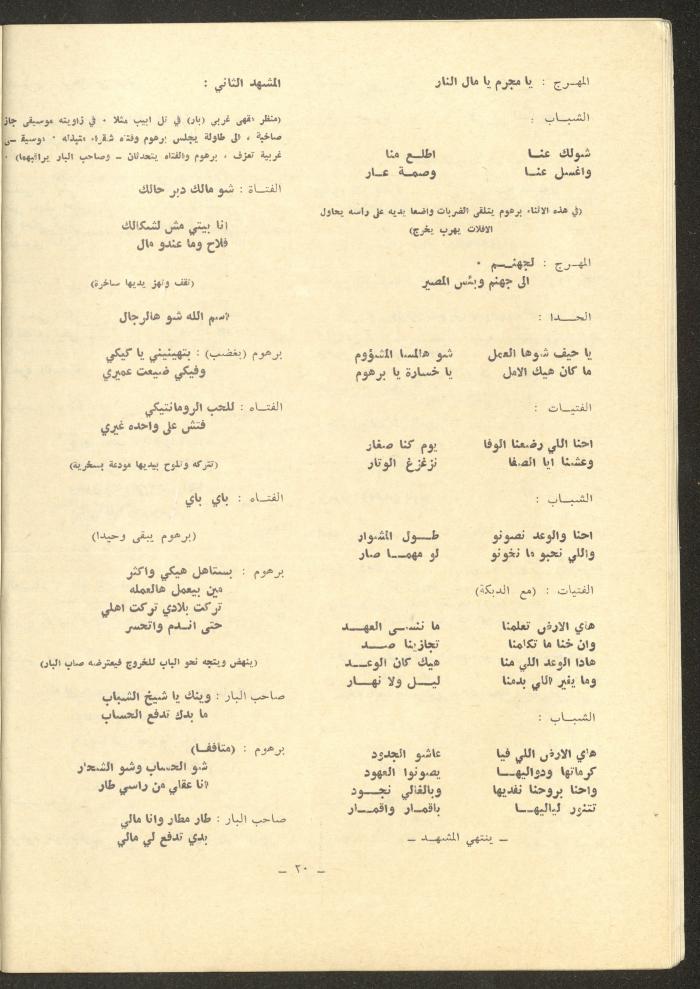 المهـرج : يا مجرم يا مال النار
الشبـاب :
شولك عنـا اطلـع منا
واغسل عنـا وصمـة عـار
(في هذه الاثناء برهوم يتلقى الضربات واضعا يديه على راسه يحاول
الافلات يهرب يخرج)
المهـرج : لجهنــم ٠
الى جهنم وبئس المصير
الحـدا :
يا حيف شوها العمل شو هالمسا المشؤوم
ما كان هيك الامل يا خسارة يا برهوم
الفتيـات :
احنا اللي رضعنا الوفا يوم كنا صغار
وعشنا ايا الصفا نزغزغ الوتار
الشبـاب :
احنا والوعد نصونو طـول المشوار
واللي نحبو ما نخونو لو مهمـا صار
الفتيات : (مع الدبكة)
هاي الارض تعلمنا ما ننسـى العهـد
وان خنا ما تكلمنا تجازينا صـد
هادا الوعد اللي منا هيك كان الوعـد
وما يغير اللي بدمنا ليـل ولا نهـار
الشبـاب :
هاي الارض اللي فيا عاشو الجدود
كرماتها ودواليهـا يصونوا العهود
واحنا بروحنا نفديها وبالغالي نجـود
تتنور لياليهـا باقمـار واقمـار
ــ ينتهي المشهـد ــ
المشهد الثاني :
(منظر مقهى غربي (بار) في تل ابيب مثلا ٠ في زاويته موسيقى جاز
صاخبة ، الى طاولة يجلس برهوم وفتاه شقراء متبذله ٠ موسيقـى
غربية تعزف ، برهوم والفتاه يتحدثان ــ وصاحب البار يراقبهما) ٠
الفتـاة : شو مالك دبر حالك
انا بيتي مش لشكالك
فلاح وما عندو مال
(تقف وتهز يديها ساخرة)
اسم الله شو هالرجال
برهوم (بغضب) : بتهينيني يا كيكي
وفيكي ضيعت عميري
الفتـاه : للحب الرومانتيكي
فتش على واحده غيري
(تتركه وتلوح بيديها مودعة بسخرية)
الفتـاه : باي باي
(برهوم يبقى وحيدا)
برهوم : بستاهل هيكي واكثر
مين بيعمل هالعمله
تركت بلادي تركت اهلي
حتى انـدم واتحسر
(ينهض ويتجه نحو الباب للخروج فيعترضه صاب البار)
صاحب البار : وينك يا شيخ الشباب
ما بدك تدفع الحساب
برهوم : (متافقا)
شو الحساب وشو الشحار
انا عقلي من راسي طار
صاحب البار : طار مطار وانا مالي
بدي تدفع لي مالي
ــ ٢٠ ــ